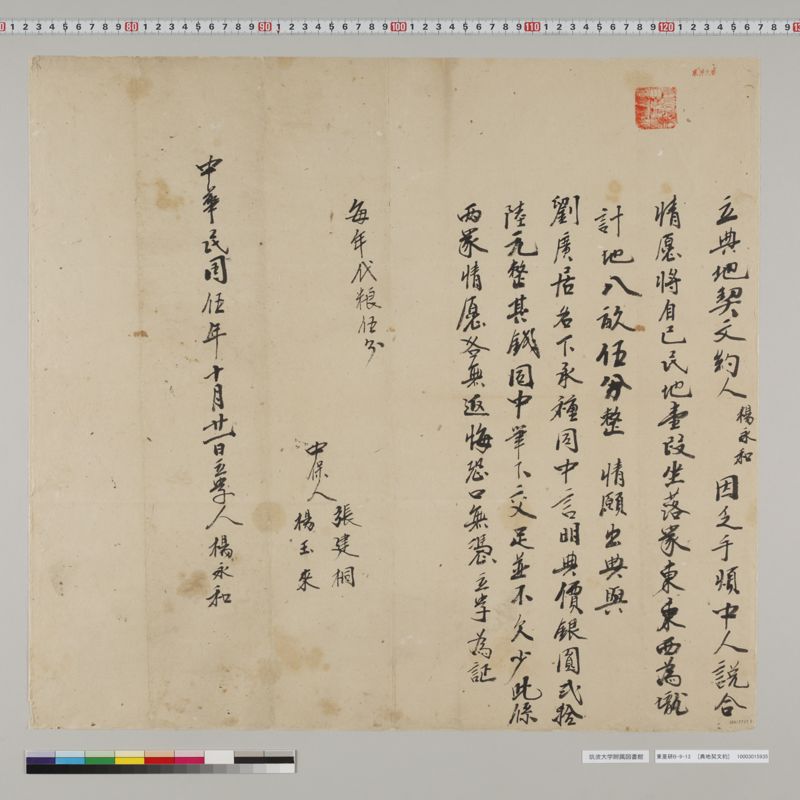 立典地契文約人楊永和因乏手煩中人説合
情愿将自己民地壹段坐落家東東西為壠
計地八畝伍分整 情願出典與
劉廣居名下承種同中言明典價銀圓弍拾
陸元整其錢同中筆下交足並不欠少此係
両家情愿各無返悔恐口無憑立字為証
每年代粮伍分
中保人
張建桐
楊玉來
中華民国伍年十月廿一日立字人楊永和
筑波大学附属図書館
東亜研B-9-13 [典地契文約] 10003015935
80 90 100 110 120